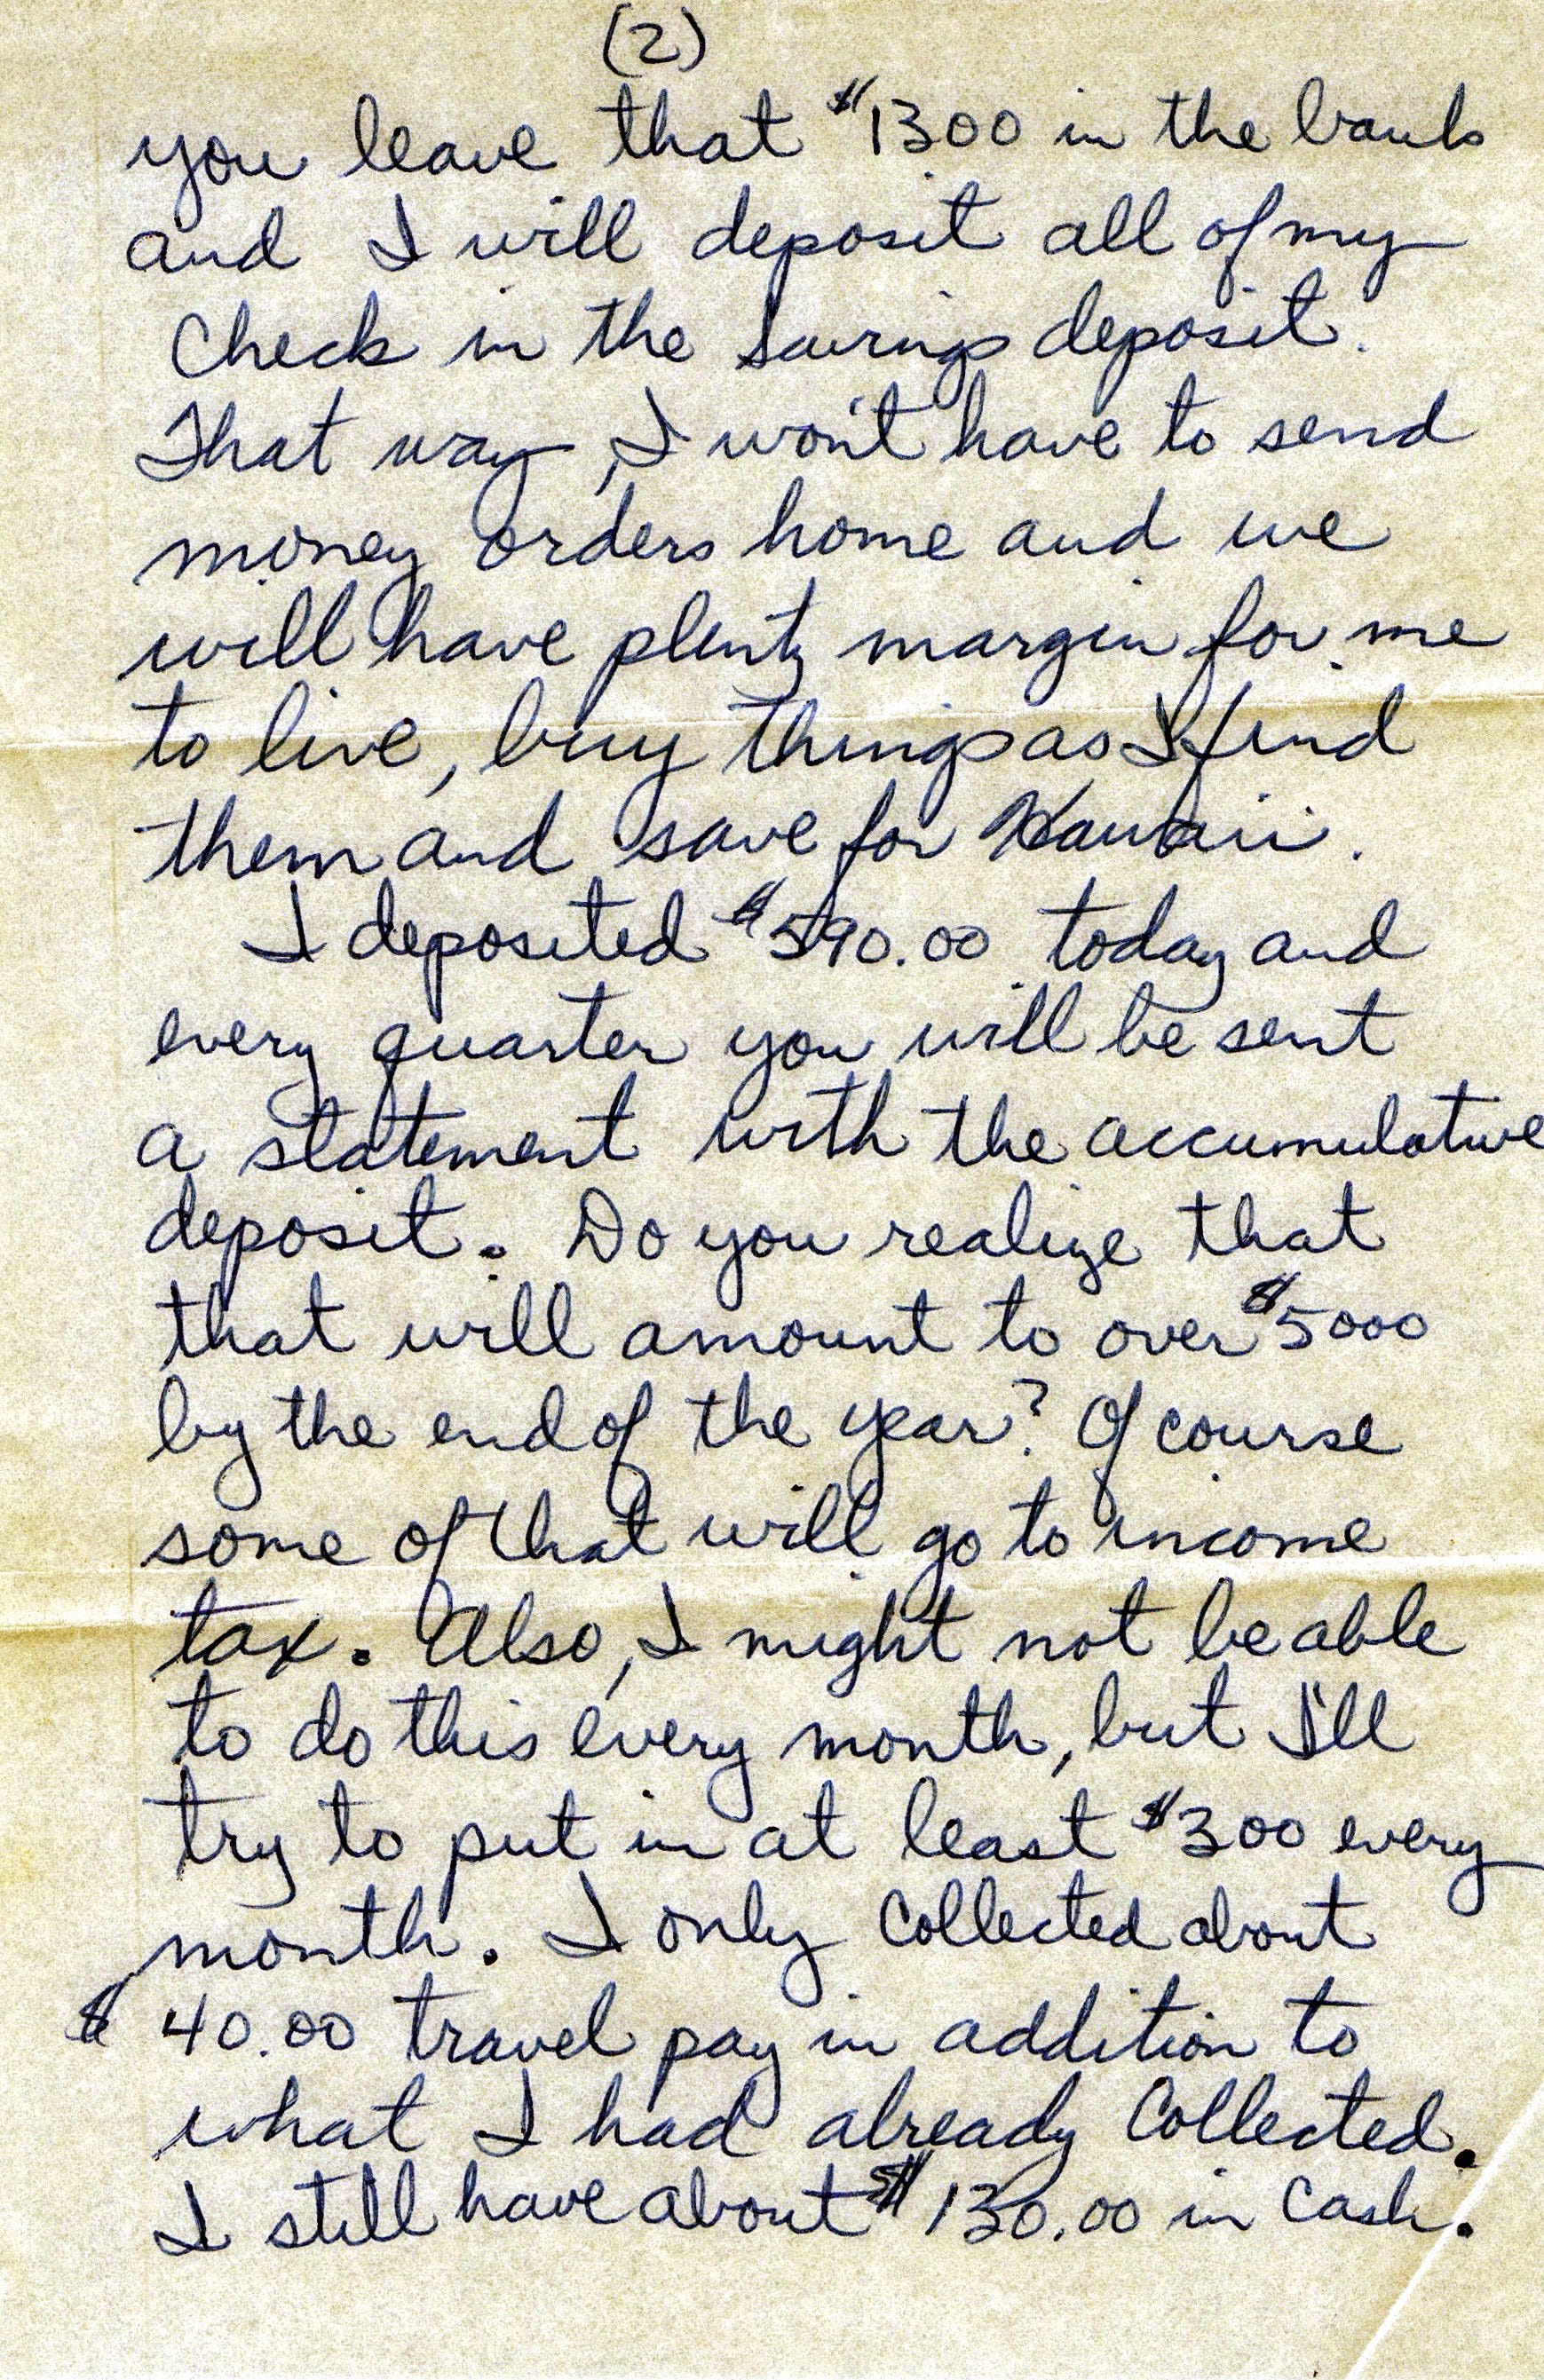 (2)
you leave that $1300 in the bank
and I will deposit all of my
Check in the Savings deposit.
That way, I won't have to send
money orders home and we
will have plenty margin for me
to live, buy things as I find
them and save for Hawaii.
I deposited $590.00 today and
every quarter you will be sent
a statement with the accumulative
deposit. Do you realize that
that will amount to over $5000
by the end of the year? Of course
some of that will go to income
tax. Also, I might not be able
to do this every month, but I'll
try to put in at least $300 every
month. I only collected about
$40.00 travel pay in addition to
what I had already collected.
I still have about $130.00 in cash.